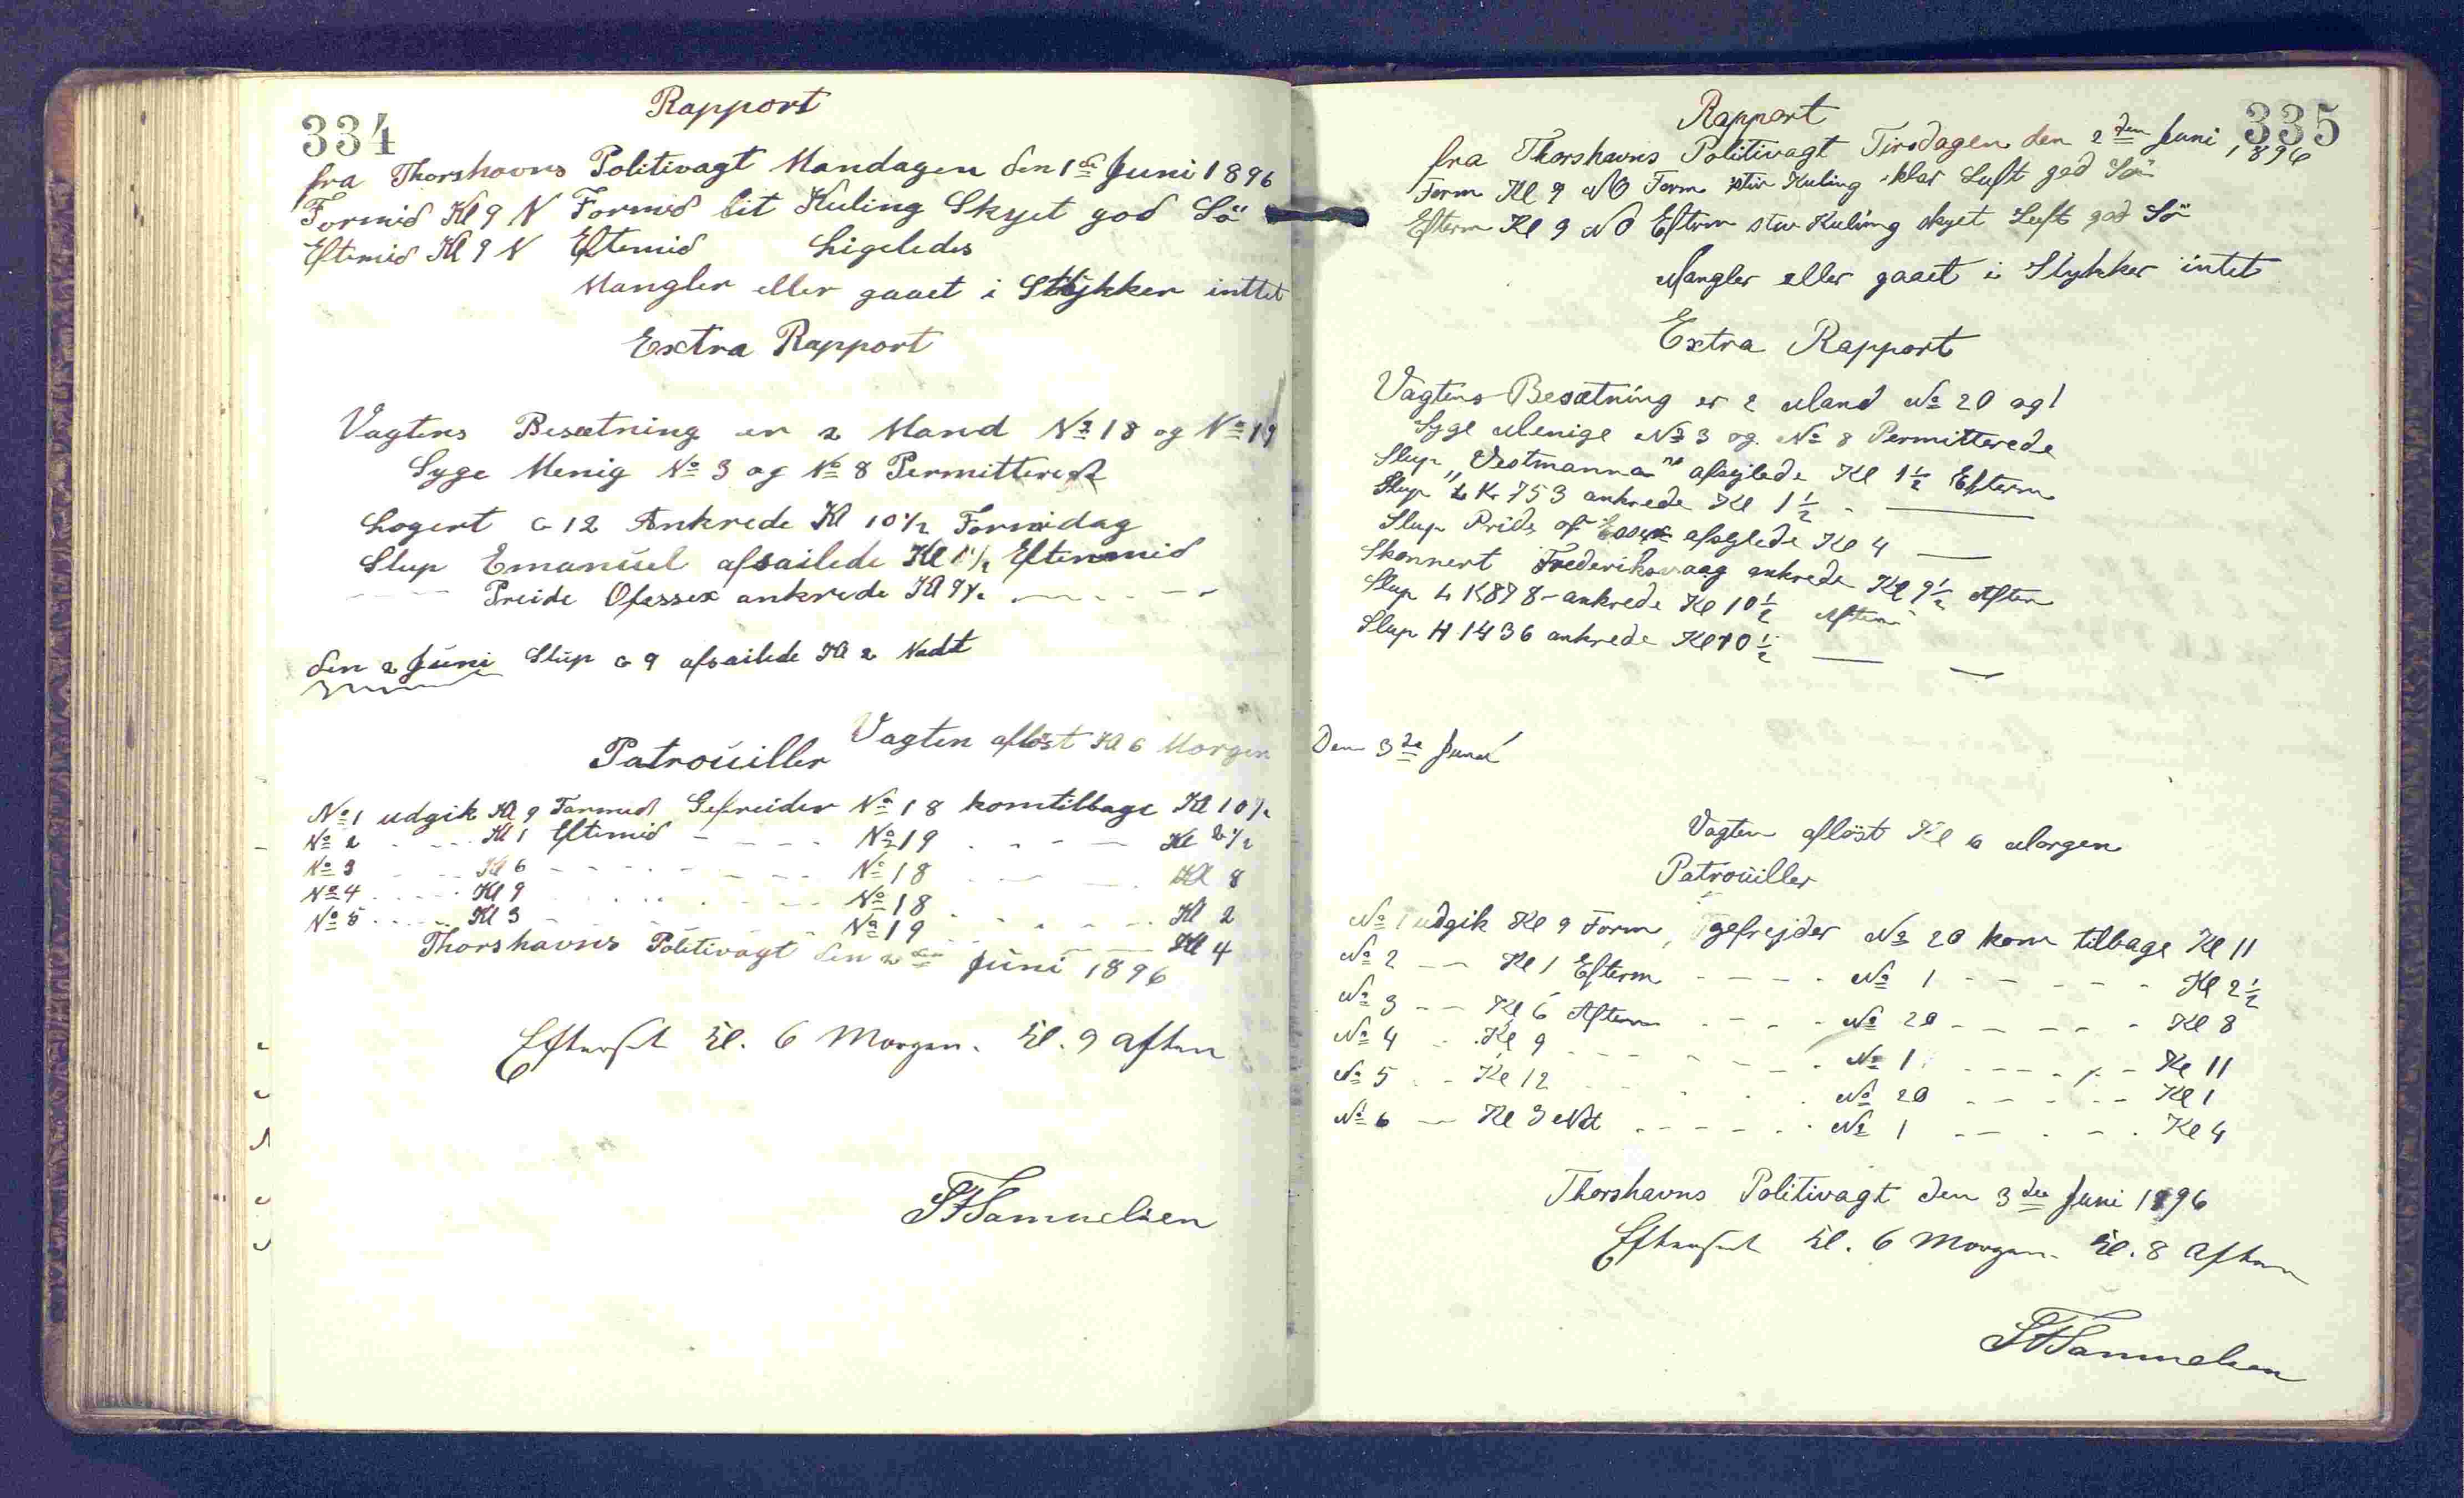 334
Rapport
fra Thorshavns Politivagt Mandagen den 1ste Juni 1896
Formid Kl 9 N Formid lit Kuling Skyet god Sö
Eftmid Kl 9 N Eftmid Ligeledes
Mangler eller gaaet i Stykker inttet
Extra Rapport
Vagtens Besætning er 2 Mand No 18 og No 19
Syge Menig No 3 og No 8 Permitterede
Logert G 12 Ankrede Kl 10 1/2 Formidag
Slup Emanuel afsailede Kl 1 1/2 Eftermid
---- Preide Ofessex ankrede Kl 9 1/2 - - - -
den 2 Juni Slup G 9 afsailede Kl 2 Nadt
Vagten aflöst Kl 6 Morgen
Patrouiller
No 1 udgik Kl 9 Formid Gefreider No 18 komtilbage Kl 10 1/2
No 2 - - - Kl 1 Eftmid - - - - No 19 - - - - Kl 2 1/2
No 3 - - - Kl 6 - - - - No 18 - - - - Kl 8
No 4 - - - Kl 9 - - - - No 18 - - - - Kl 2
No 5 - - - Kl 3 - - - - No 19 - - - - Kl 4
Thorshavns Politivagt den 2den Juni 1896
Kl. 6 Morgen. Kl. 9 Aften
Samuelsen
335
Rapport
fra Thorshavns Politivagt Tirsdagen den 2den Juni 1896
Form Kl 9 NO Form stiv Kuling klar Luft god Sö
Efterm Kl 9 NO Efterm stiv Kuling skyet Luft god Sö
Mangler eller gaaet i Stykker intet
Extra Rapport
Vagtens Besætning er 2 Mand No 20 og 1
Syge Menige No 3 og No 8 Permitterede
Slup "Vestmanna" afseglede Kl 1 1/2 Efterm
Slup L K 753 ankrede Kl 1 1/2 - ———
Slup Pride of Essex afseglede Kl 4 —
Skonnert Frederiksvaag ankrede Kl 9 1/2 Aften
Slup L K 878 - ankrede Kl 10 1/2 Aften
Slup H 1436 ankrede Kl 10 1/2 — —
Den 3de Juni
Vagten aflöst Kl 6 Morgen
Patrouiller
No 1 udgik Kl 9 Form, gefrejder No 20 kom tilbage Kl 11
No 2 — Kl 1 Efterm - - - - No 1 - - - - Kl 2 1/2
No 3 - - Kl 6 Aften - - - - No 20 - - - - Kl 8
No 4 - - Kl 9 - - - - No 1 - - - - Kl 11
No 5 - - Kl 12 - - - - No 20 - - - - Kl 1
No 6 — Kl 3 Nat - - - - No 1 - - - - Kl 4
Thorshavns Politivagt den 3die Juni 1896
Kl. 6 Morgen. Kl. 8 Aften
Samuelsen